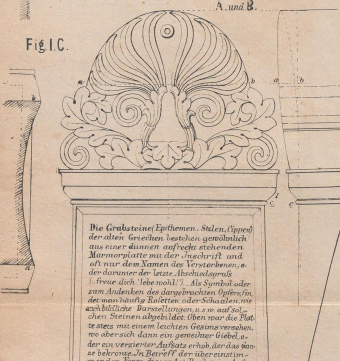 A. und B.
Fig I.C.
a
b
a
b
b
c
c
d
d
Die Grabsteine (Epithemen, Stelen, Cippen)
der alten Griechen bestehen gewöhnlich
aus einer dünnen aufrecht stehenden
Marmorplatte mit der Inschrift und
oft nur dem Namen des Verstorbenen, o-
der darunter der letzte Abschiedsgruß
(„freue dich, lebe wohl!"). Als Symbol oder
zum Andenken des dargebrachten Opfers, fin-
det man häufig Rosetten oder Schaalen, wie
auch bildliche Darstellungen, u.s.w. auf sol-
chen Steinen abgebildet. Oben war die Plat-
te stets mit einem leichten Gesims versehen,
wo über sich dann ein gewellter Giebel, o-
der ein verzierter Aufsatz erhob, der das Gan-
ze bekrönte. In Betreff der übereinstim-